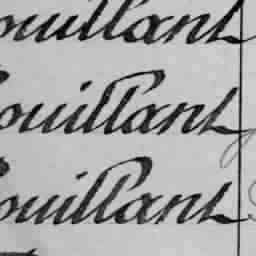 ouillant
ouillant
ouillant